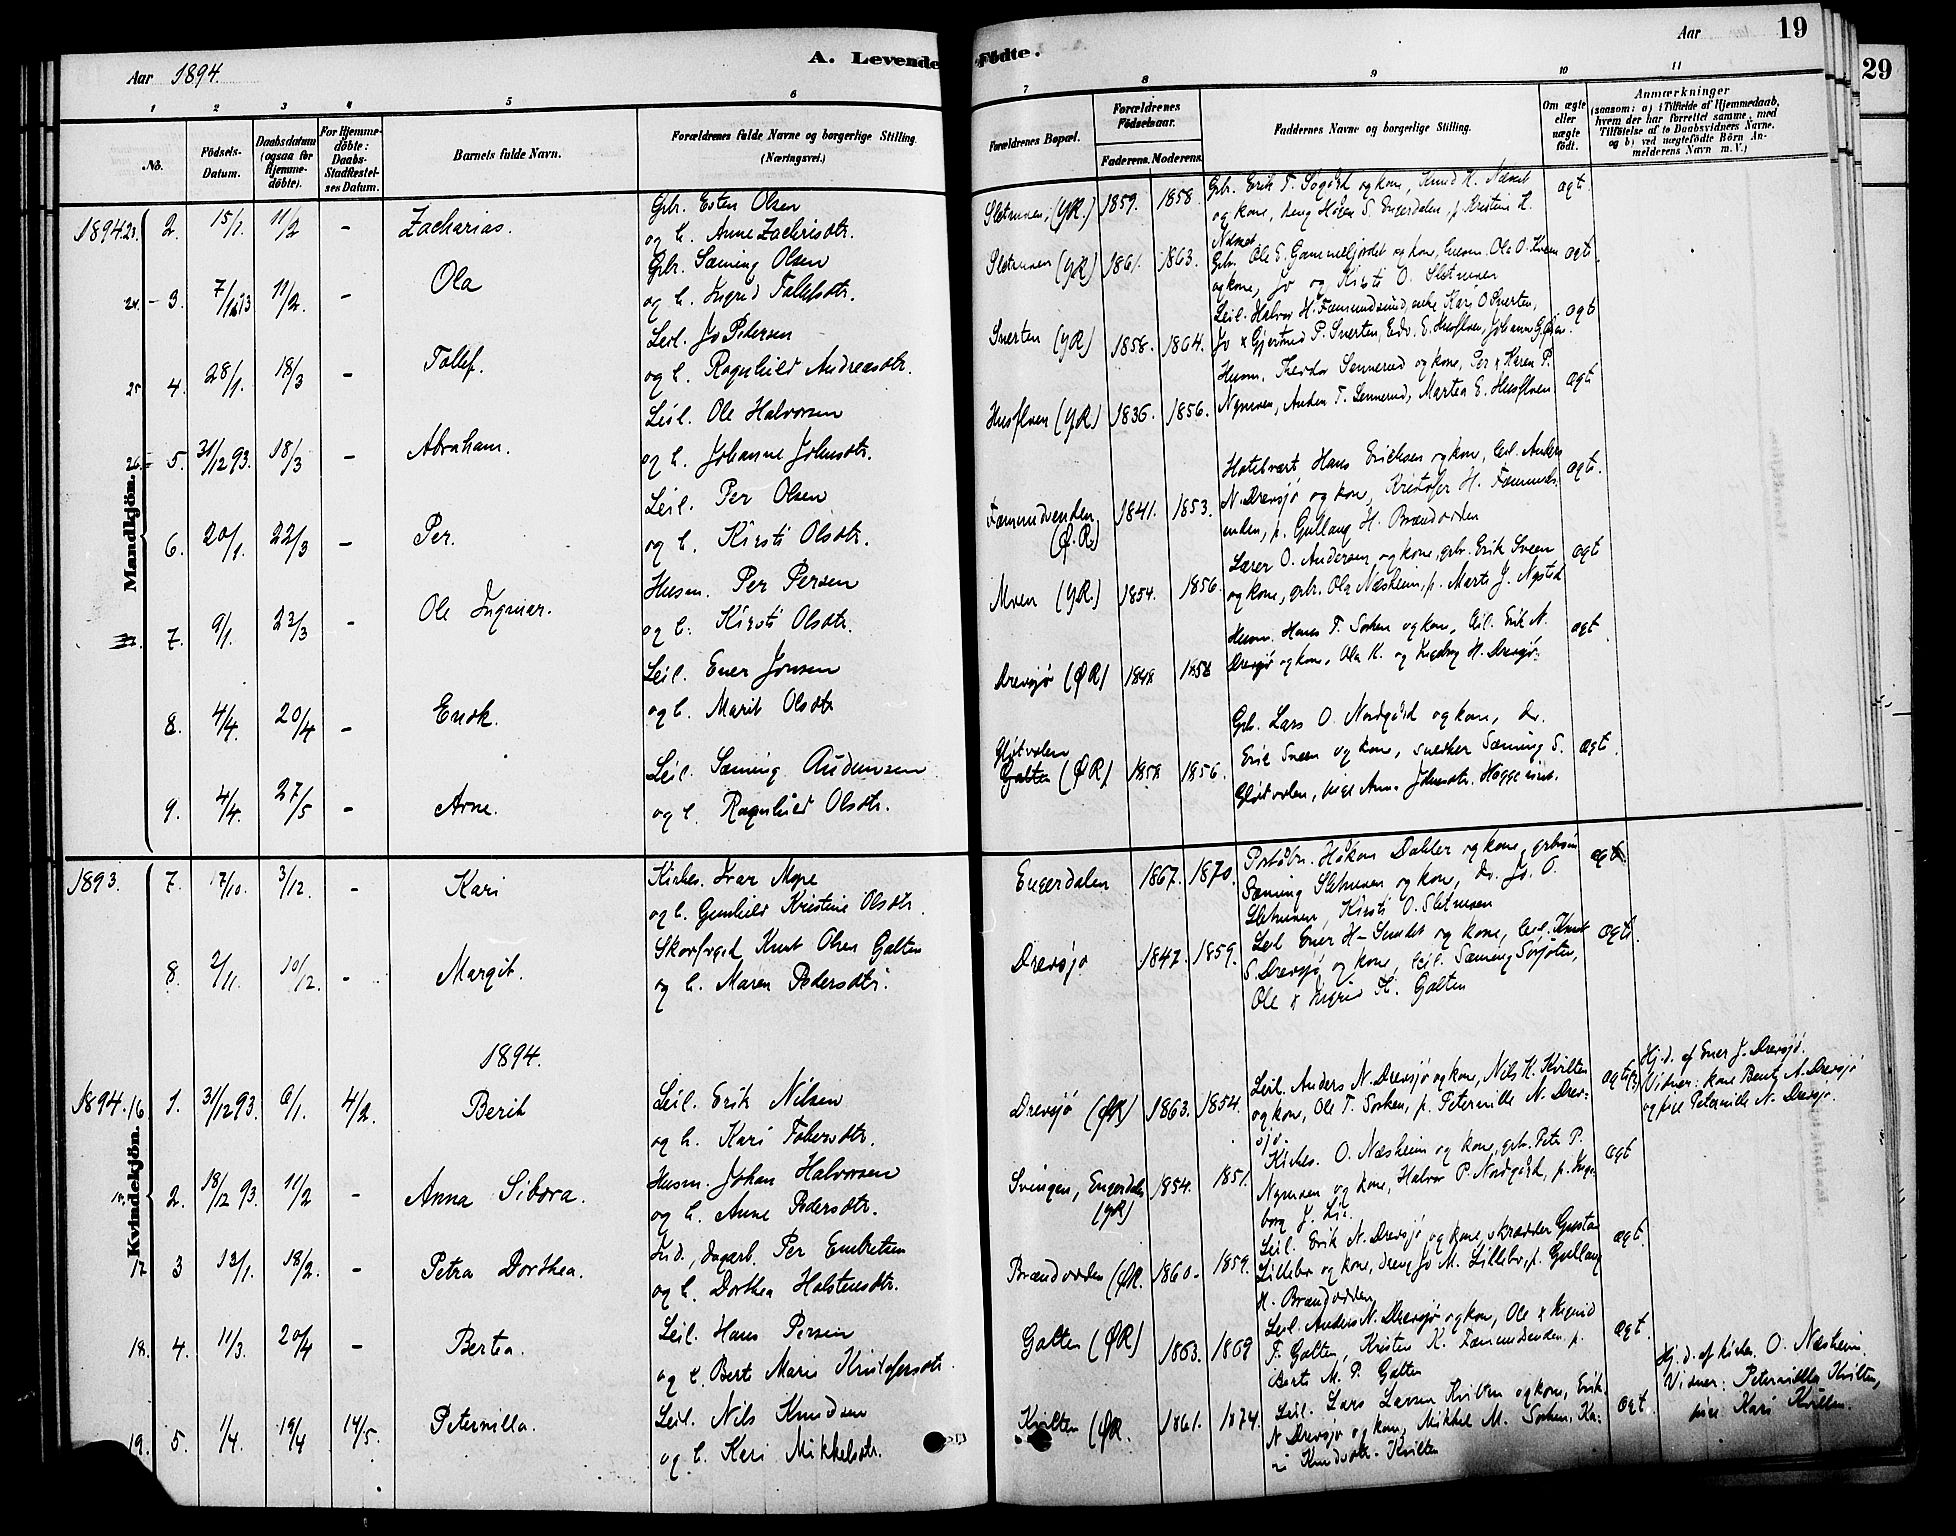 Aar 1894.
A. Levende Födte.
Aar
19
29
1
2
3
4
5
6
7
8
9
10
11
No.
Födsels-
Datum.
Daabsdatum
(ogsaa for
Hjemme-
döbte).
For Hjemme-
döbte:
Daabs-
Stadfæstel-
ses Datum.
Barnets fulde Navn.
Forældrenes fulde Navne og borgerlige Stilling.
(Næringsvei.)
Forældrenes Bopæl.
Forældrenes
Födselsaar.
Faderens.
Moderens.
Faddernes Navne og borgerlige Stilling.
Om ægte
eller
uægte
födt.
Anmærkninger
(saasom: a) i Tilfælde af Hjemmedaab,
hvem der har forrettet samme, med
Tilföielse af to Daabsvidners Navne,
og b) ved uægtefödte Börn An-
melderens Navn m. V.)
Mandkjön.
1894 23. 2. 15/1. 11/2 - Zacharias.
Gbr. Esten Olsen
og h. Anne Zachrisdtr.
Sletmoen, (YR.) 1859. 1858.
Gbr. Erik T. Søgård og kone, Knud H. Næset
og kone, S. Engerdalen, p. Kristine H.
Næset
ægt
24 - 3. 7/12 93 11/2. - Ola
Gbr. Sæming Olsen
og h. Ingrid Tollefsdtr.
Sletmoen (YR) 1861. 1863.
og kone, Jo og Kirsti O. Sletmoen
ægt
25 4. 28/1. 18/3 - Tollef.
Leil. Jo Pedersen
og h. Ragnhild Andreasdtr.
Snerten (YR) 1858. 1864.
Jo & Gjertrud P. Snerten,
ægt
26 5. 31/12 93. 18/3 - Abraham.
Leil. Ole Halvorsen
og h. Johanne Johnsdtr.
Husfloen (YR) 1836. 1856.
Husm. Theodor Sennerud og kone, Per & Karen P.
Nymoen, T. Sennerud, Martea E. Husfloen
ægt
6. 20/1. 22/3 - Per.
Leil. Per Olsen
og h. Kirsti Olsdtr.
Fæmundenden (Ø.R.) 1841. 1853.
Hotelvært Hans Erichsen og kone, leil. Anders
N. Drevsjø og kone, Kristofer H. Fæmund-
enden, p. Gullaug H. Brændodden
ægt.
7. 9/1. 22/3 - Ole Ingmar.
Husm. Per Persen
og h. Kirsti Olsdtr.
Moen (YR.) 1854. 1856.
Lærer O. Andersen og kone, gbr. Erik Sveen
og kone, gbr. Ola Næsheim, p. Marte J. Nysted
ægt
8. 4/4. 20/4 - Enok.
Leil. Ener Jonsen
og h. Marit Olsdtr
Drevsjø (ØR) 1848 1858
Husm. Hans T. Sorken og kone, leil. Erik N.
Drevsjø og kone, Ola K. og Ingeborg H. Drevsjø.
ægt
9. 4/4. 27/5 - Arne.
Leil. Sæming Audunsen
og h. Ragnhild Olsdtr.
Gløtvolen
Galten (ØR) 1858 1856.
Gbr. Lars O. Nordgård og kone, do.
Erik Sveen og kone, snedker Sæming S.
Gløtvolen, pige Anna Johnsdtr.
ægt.
1893. 7. 17/10. 3/12. - Kari
Kirkes. Ivar Moe
og h. Gunhild Kristine Olsdtr.
Engerdalen 1867. 1870.
Håkon Dahler og kone, gbrsøn
Sæming Sletmoen og kone, do. Jo. O.
Sletmoen, Kirsti O. Sletmoen
ægt
8. 2/11. 10/2. - Margit.
Skovfoged Knut Olsen Galten
og h. Maren Pedersdtr.
Drevsjø 1847. 1859.
Leil Ener H. Sundet og kone, leil. Knut
S. Drevsjø og kone, leil. Sæming Sorjoten,
Ole & Ingrid H. Galten
ægt.
Kvindekjön.
1894.
1894. 16 1. 31/12 93. 6/1. 4/2. Berit
Leil. Erik Nilsen
og h. Kari Tollevsdtr.
Drevsjø (ØR) 1863. 1854.
Leil. Anders N. Drevsjø og kone, Nils K. Kvilten
og kone, Ole T. Sorken, p. Peternille N. Drev-
sjø.
ægt
Hj. d. af Ener J. Drevsjø.
Vidner: kone A. Drevsjø
og pige Peternille N. Drevsjø.
2. 18/12 93. 11/2 - Anna Sibora.
Husm. Johan Halvorsen
og h. Anne Pedersdtr.
Svingen, Engerdalen (YR) 1854. 1851.
Kirkes. O. Næsheim og kone, gbr. Peter P.
Nymoen og kone, Halvor P. Nordgård, p. Inge-
borg J. Lie.
ægt
17 3 13/1. 18/2. - Petra Dorthea.
Ind., dagarb. Per Embretsen
og h. Dorthea Halstensdtr.
Brændodden (ØR. 1860. 1859.
Leil. Erik N. Drevsjø og kone, skrædder Gustav
Lillebo og kone, dreng Jo M. Lillebo, p. Gullaug
H. Brændodden
ægt.
18. 4. 11/3. 20/4 - Bertea.
Leil. Hans Persen
og h. Berte Marie Kristofersdtr.
Galten (ØR) 1863. 1869
Leil. Anders N. Drevsjø og kone, Ole & Ingrid
T. Galten, Kristen K. Fæmundenden, p.
Berte M. P. Galten
ægt.
19. 5. 1/4. 19/4 14/5. Peternilla.
Leil. Nils Knudsen
og h. Kari Mikkelsdtr.
Kvilten (ØR. 1861. 1874.
Leil. Lars Larsen Kvilten og kone, Erik
N. Drevsjø og kone, Mikkel M. Sorken, Ka-
ri Knudsdtr. Kvilten
ægt.
Hj. d. af kirkes. O. Næsheim.
Vidner: Peternilla Kvilten,
pige Kari Kvilten.